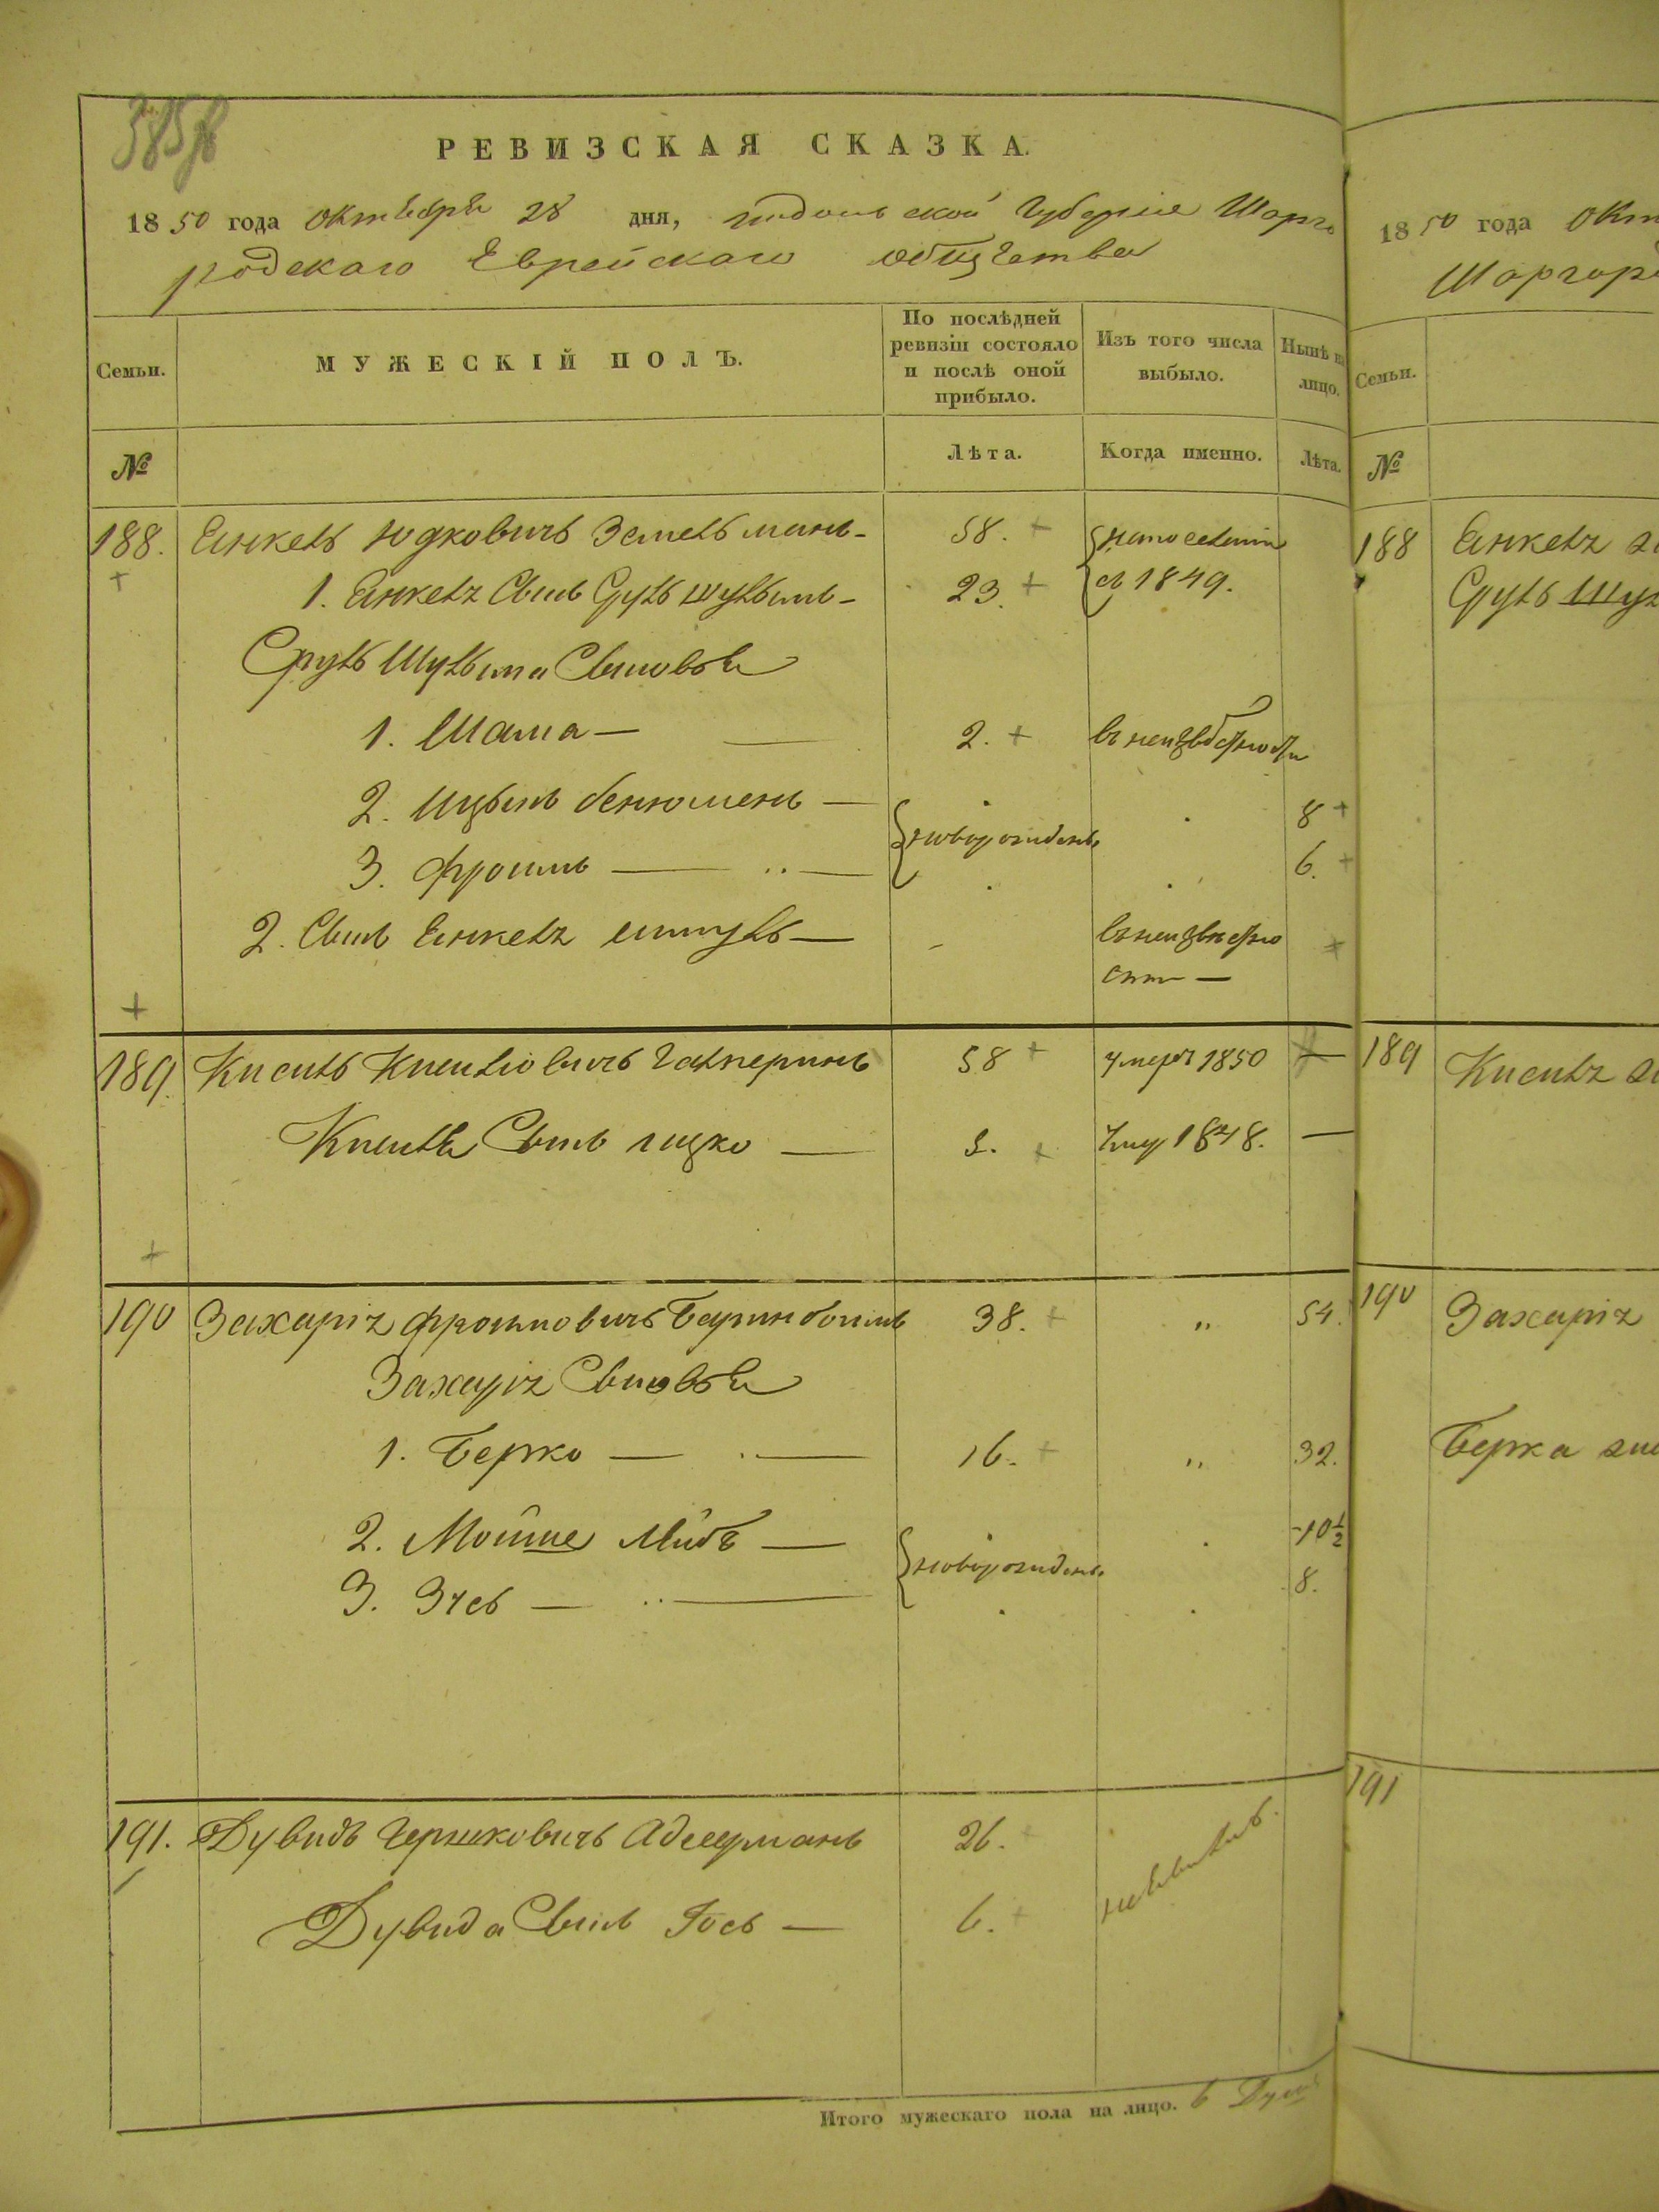 385
РЕВИЗСКАЯ СКАЗКА.
1850 года Октября 28 дня, Подольской Губерніи Шарго
родскаго Еврейскаго общества
Семьи.
МУЖЕСКІЙ ПОЛЪ.
По послѣдней ревизіи состояло и послѣ оной прибыло.
Изъ того числа выбыло.
Нынѣ на лицо.
№
Лѣта.
Когда именно.
Лѣта.
188. Янкель Юдковичъ Зельманъ 58.
1. Янкеля Сынъ Сруль Шулимъ 23. съ 1849.
Сруль Шулыма Сыновья
1. Шама 2. въ неизвѣстности
2. Ицык Бенюменъ 8
новорожден.
3. Фроимъ 6.
2. Сынъ Янкеля 
въ неизвестно
сти
189. Кисиль Кисилiовичъ Галперинъ 58 умеръ 1850 —
Кисиля Сынъ Ицко умер 1848. —
190 Захарія Фроимовичъ 38. „ 54.
Захарія Сыновья
1. Берко 16. „ 32.
2. Мойше Лейбъ 10 1/2
новорожден.
3. 8.
191. Дувидъ Гершковичъ 26.
Дувида Сынъ Іось 6.
Итого мужескаго пола на лицо. 6 Душ
1850 года Окт
Шаргоро
Семьи.
№
188 Янкеля
Сруль Шул
189 Кисиля
190 Захарія
Берка
191